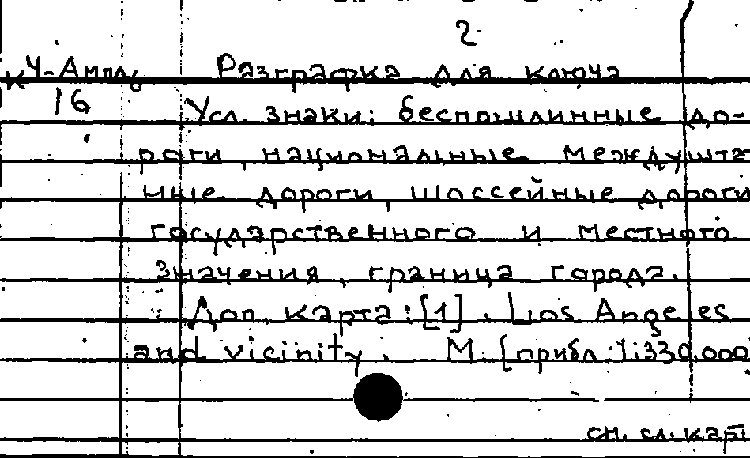 2
К 4-Англ. Разграфка для ключа
16 Усл. знаки: беспошлинные до-
роги, национальные междушта
тные дороги, шоссейные дороги
государственного и местного
значения, граница города.
Доп. карта: [1]. Los Angeles
and vicinity. М. [прибл. 1:330.000
см. сл. карт